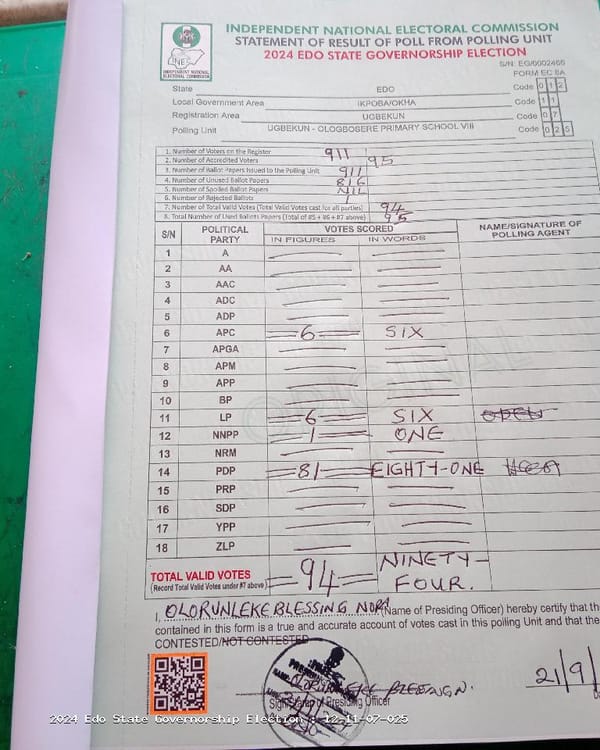 INDEPENDENT NATIONAL ELECTORAL COMMISSION
STATEMENT OF RESULT OF POLL FROM POLLING UNIT
2024 EDO STATE GOVERNORSHIP ELECTION
INEC
INDEPENDENT NATIONAL ELECTORAL COMMISSION
S/N: EG/0002466
FORM EC 8A
State EDO Code 0 1 2
Local Government Area IKPOBA/OKHA Code 1 1
Registration Area UGBEKUN Code 0 7
Polling Unit UGBEKUN - OLOGBOSERE PRIMARY SCHOOL VIII Code 0 2 5
1. Number of Voters on the Register 911
2. Number of Accredited Voters 95
3. Number of Ballot Papers Issued to the Polling Unit 911
4. Number of Unused Ballot Papers 816
5. Number of Spoiled Ballot Papers NIL
6. Number of Rejected Ballots 1
7. Number of Total Valid Votes (Total Valid Votes cast for all parties) 94
8. Total Number of Used Ballots Papers (Total of #5 + #6 + #7 above) 95
S/N POLITICAL PARTY VOTES SCORED NAME/SIGNATURE OF POLLING AGENT
IN FIGURES IN WORDS
1 A
2 AA
3 AAC
4 ADC
5 ADP
6 APC 6 SIX
7 APGA
8 APM
9 APP
10 BP
11 LP 6 SIX
12 NNPP 1 ONE
13 NRM
14 PDP 81 EIGHTY-ONE
15 PRP
16 SDP
17 YPP
18 ZLP
TOTAL VALID VOTES 94 NINETY-
(Record Total Valid Votes under #7 above) FOUR.
I, OLORUNLEKE BLESSING NORA (Name of Presiding Officer) hereby certify that th
contained in this form is a true and accurate account of votes cast in this polling Unit and that the
CONTESTED/NOT CONTESTED
21/9/
Signature of Presiding Officer
2024 Edo State Governorship Election
12-11-07-025